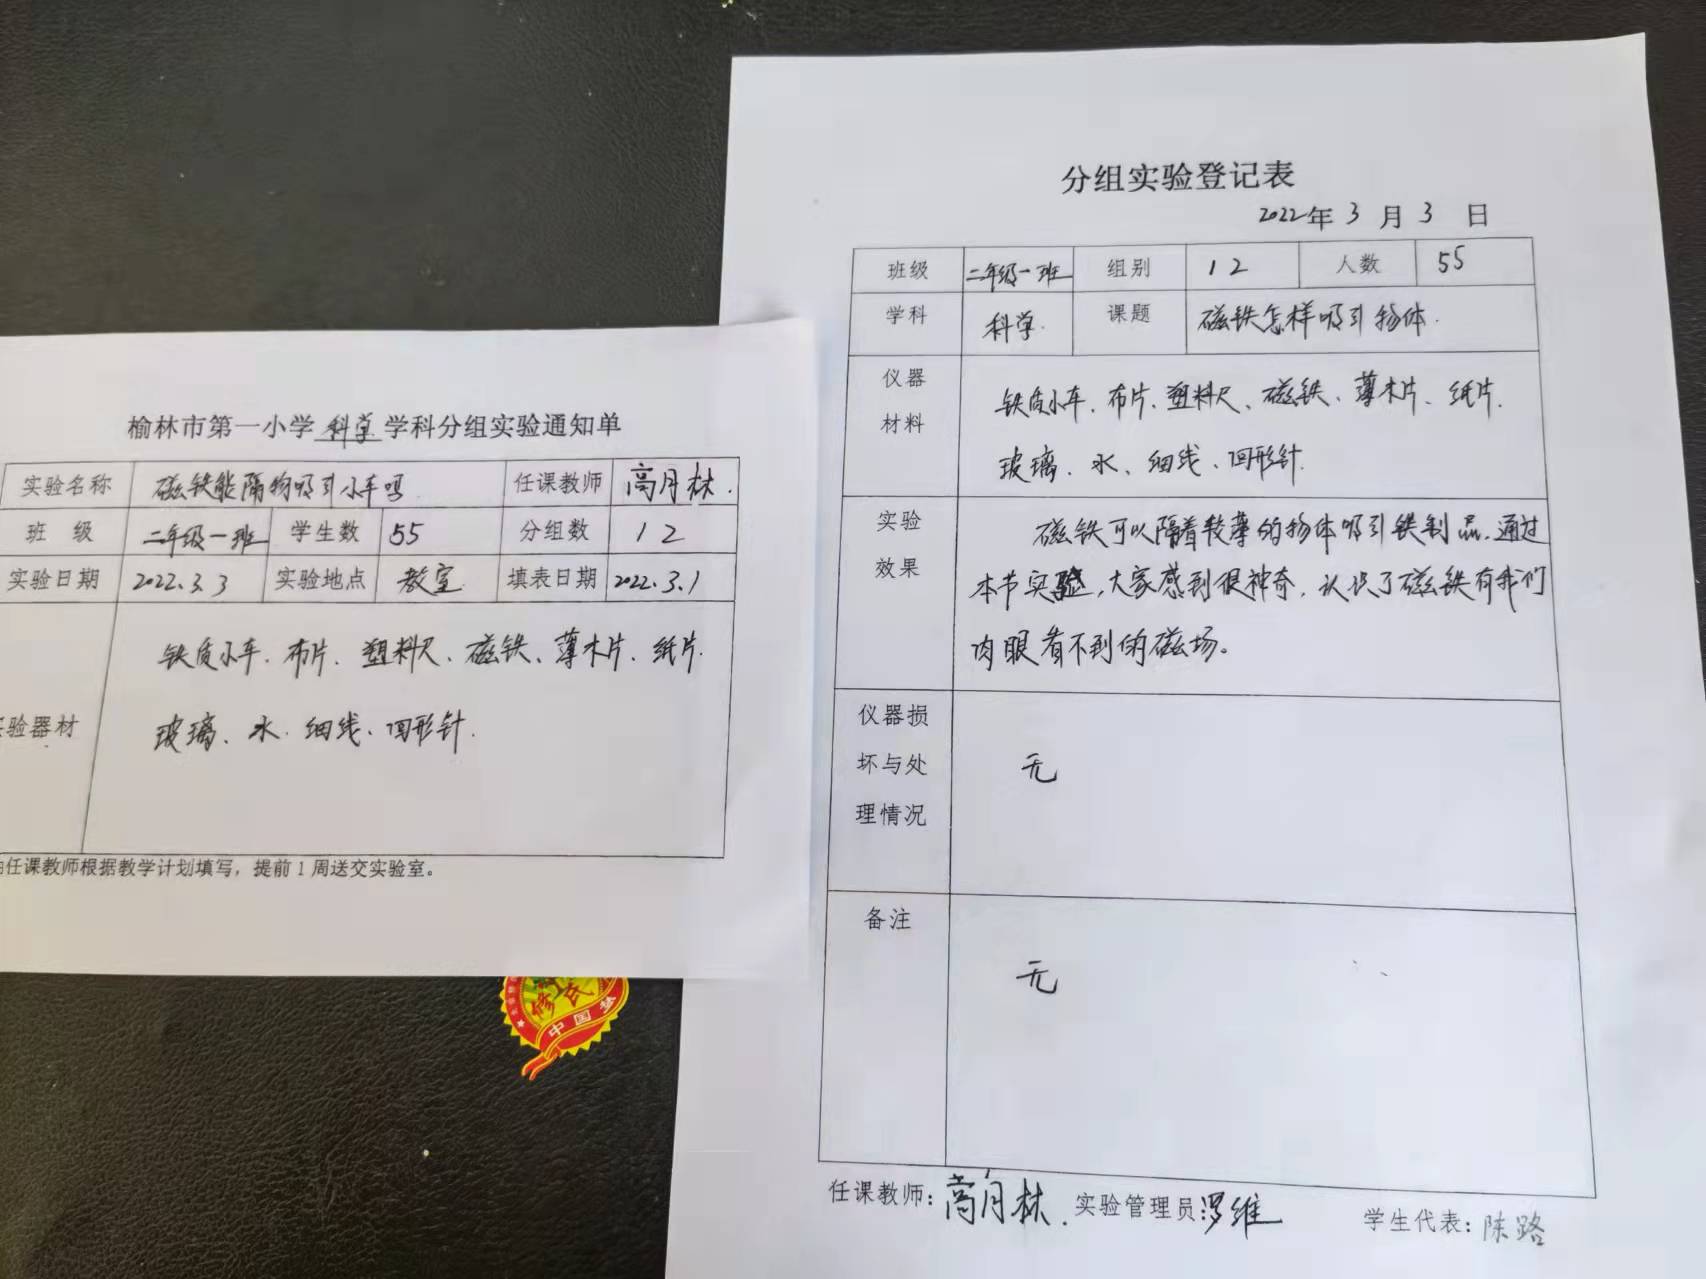 榆林市第一小学科学学科分组实验通知单
实验名称 磁铁能隔物吸引小车吗 任课教师 高月林.
班 级 二年级一班 学生数 55 分组数 12
实验日期 2022.3.3 实验地点 教室 填表日期 2022.3.1
铁质小车、布片、塑料尺、磁铁、薄木片、纸片.
验器材
玻璃、水、细线、回形针.
任课教师根据教学计划填写，提前1周送交实验室。
修 民
中国梦
分组实验登记表
2022年3月3日
班级 二年级一班 组别 12 人数 55
学科 科学. 课题 磁铁怎样吸引物体.
仪器
材料
铁质小车、布片、塑料尺、磁铁、薄木片、纸片.
玻璃、水、细线、回形针.
实验
效果
磁铁可以隔着较薄的物体吸引铁制品.通过
本节实验，大家感到很神奇，认识了磁铁有我们
肉眼看不到的磁场。
仪器损
坏与处
理情况
无
备注
无
任课教师：高月林. 实验管理员罗维 学生代表：陈路